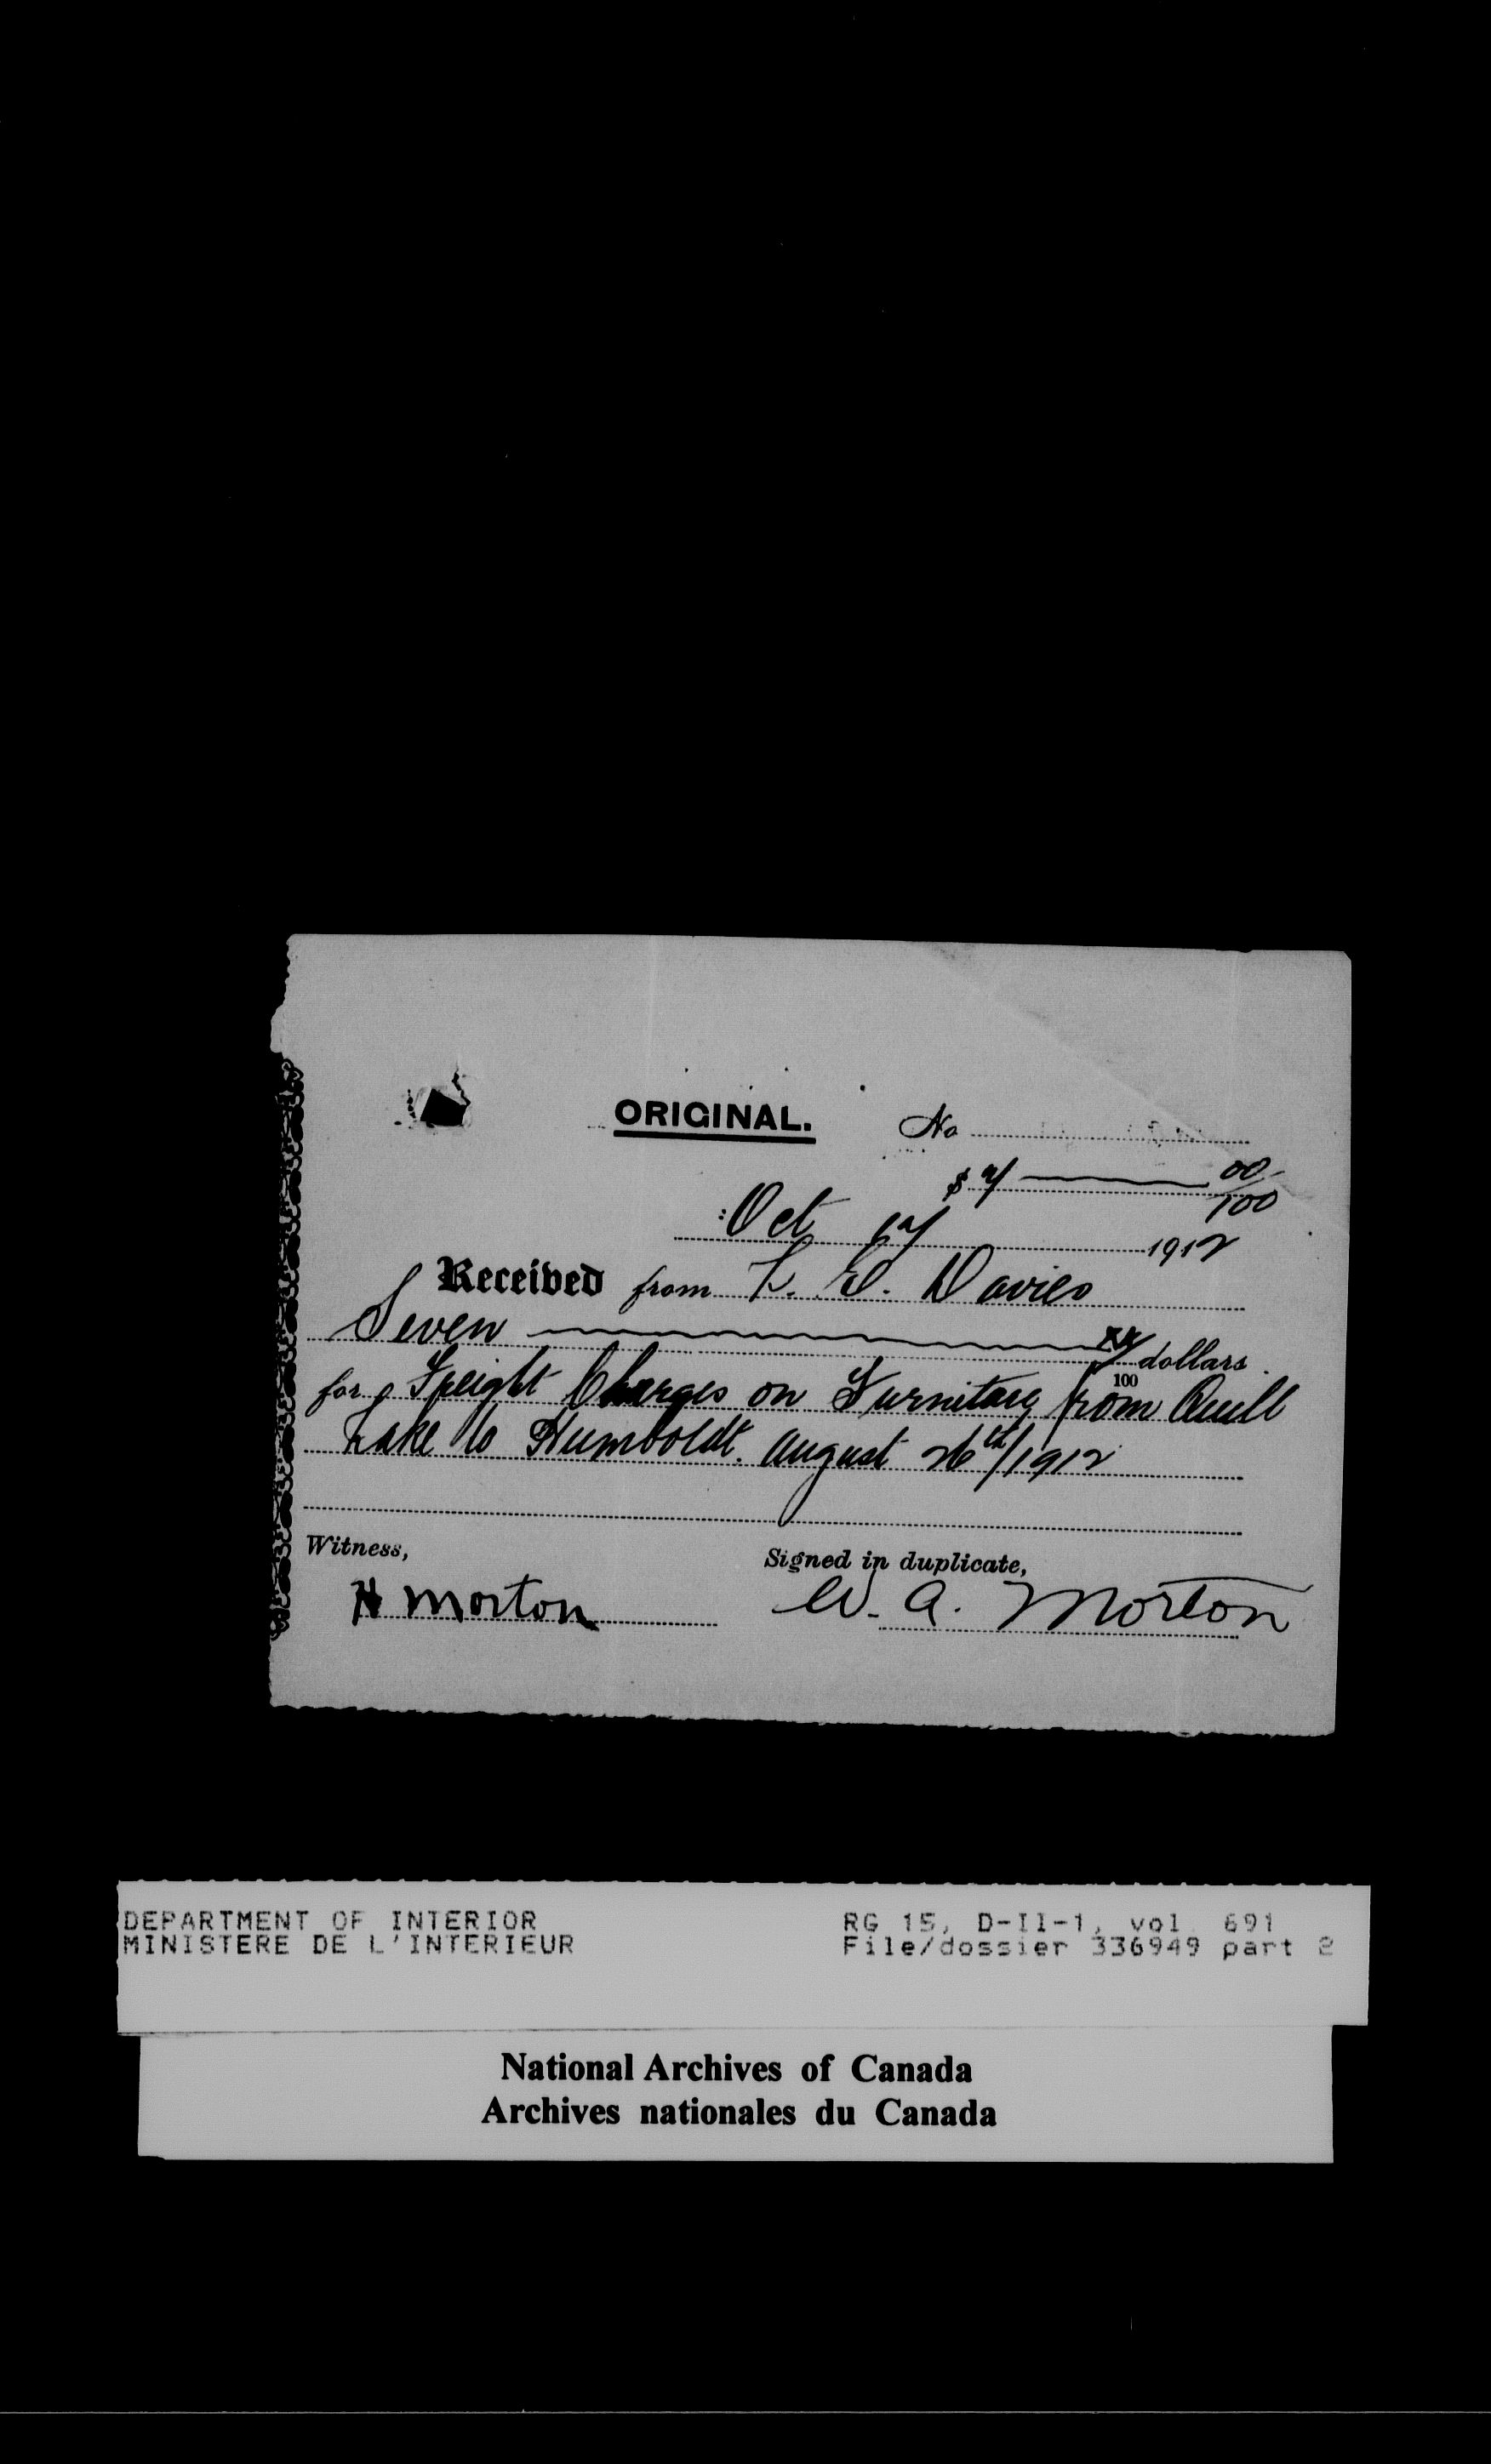 ORIGINAL. No
$ 7 00/100
Oct 17 1912
Received from L. E. Davies
Seven xx/100 dollars
for Freight Charges on Furniture from Quill
Lake to Humboldt. August 26th/1912
Witness, Signed in duplicate,
H Morton W. A. Morton
DEPARTMENT OF INTERIOR RG 15, D-II-1, vol 691
MINISTERE DE L'INTERIEUR File/dossier 336949 part 2
National Archives of Canada
Archives nationales du Canada